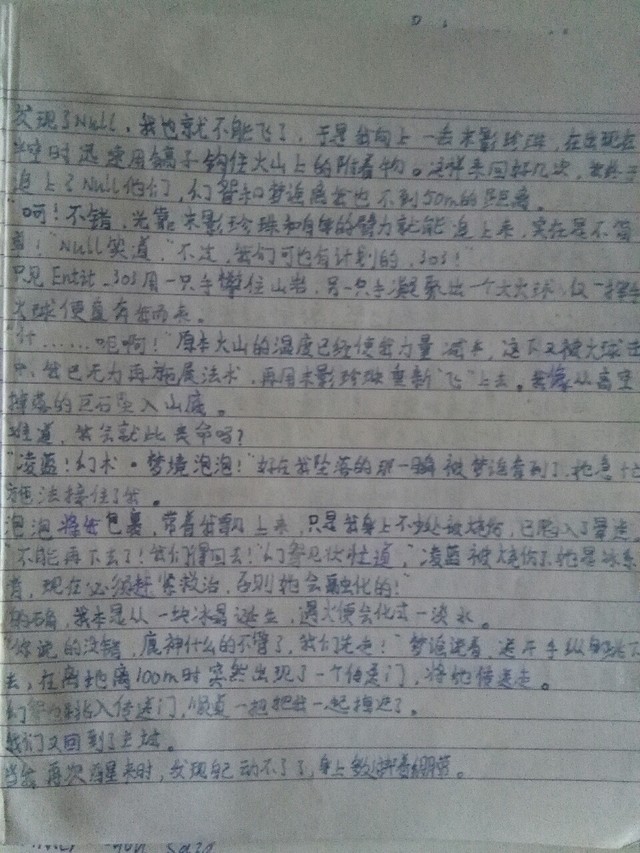 发现了Null,我也就不能飞了,于是我向上一丢末影珍珠,在出现在
半空时迅速用镐子钩住火山上的附着物。这样来回好几次,我终于
追上了Null他们,幻智和梦追离我也不到50m的距离。
"呵!不错,光靠末影珍珠和自身的臂力就能追上来,实在是不简
单!"Null笑道,"不过,我们可也有计划的,303!"
只见Entit_303用一只手攀住山岩,另一只手凝聚出一个大火球,仅一挥手
火球便直奔我而来。
"什……呃啊!"原本火山的温度已经使我力量减半,这下又被火球击
中,我已无力再施展法术,再用末影珍珠重新"飞"上去。我像从高空
掉落的巨石坠入山底。
难道,我会就此丧命吗?
"凌蓝!幻术·梦境泡泡!"好在我坠落的那一瞬被梦追看到了,他急忙
施法接住了我。
泡泡将我包裹,带着我飘上来,只是我身上不少处被烧伤,已陷入了昏迷。
"不能再下去了!我们得回去!"幻智见状忙道,"凌蓝被烧伤了,她是冰系
者,现在必须赶紧救治,否则她会融化的!"
的确,我本是从一块冰晶诞生,遇火便会化成一淡水。
"你说的没错,底神什么的不管了,我们先走!"梦追说着,送开手纵身落下
去,在离地离100m时突然出现了一个传送门,将他传送走。
入传送门,顺道一把把我一起拽进了。
我们又回到了主城。
当我再次醒来时,发现自己动不了了,身上数绑着绷带。